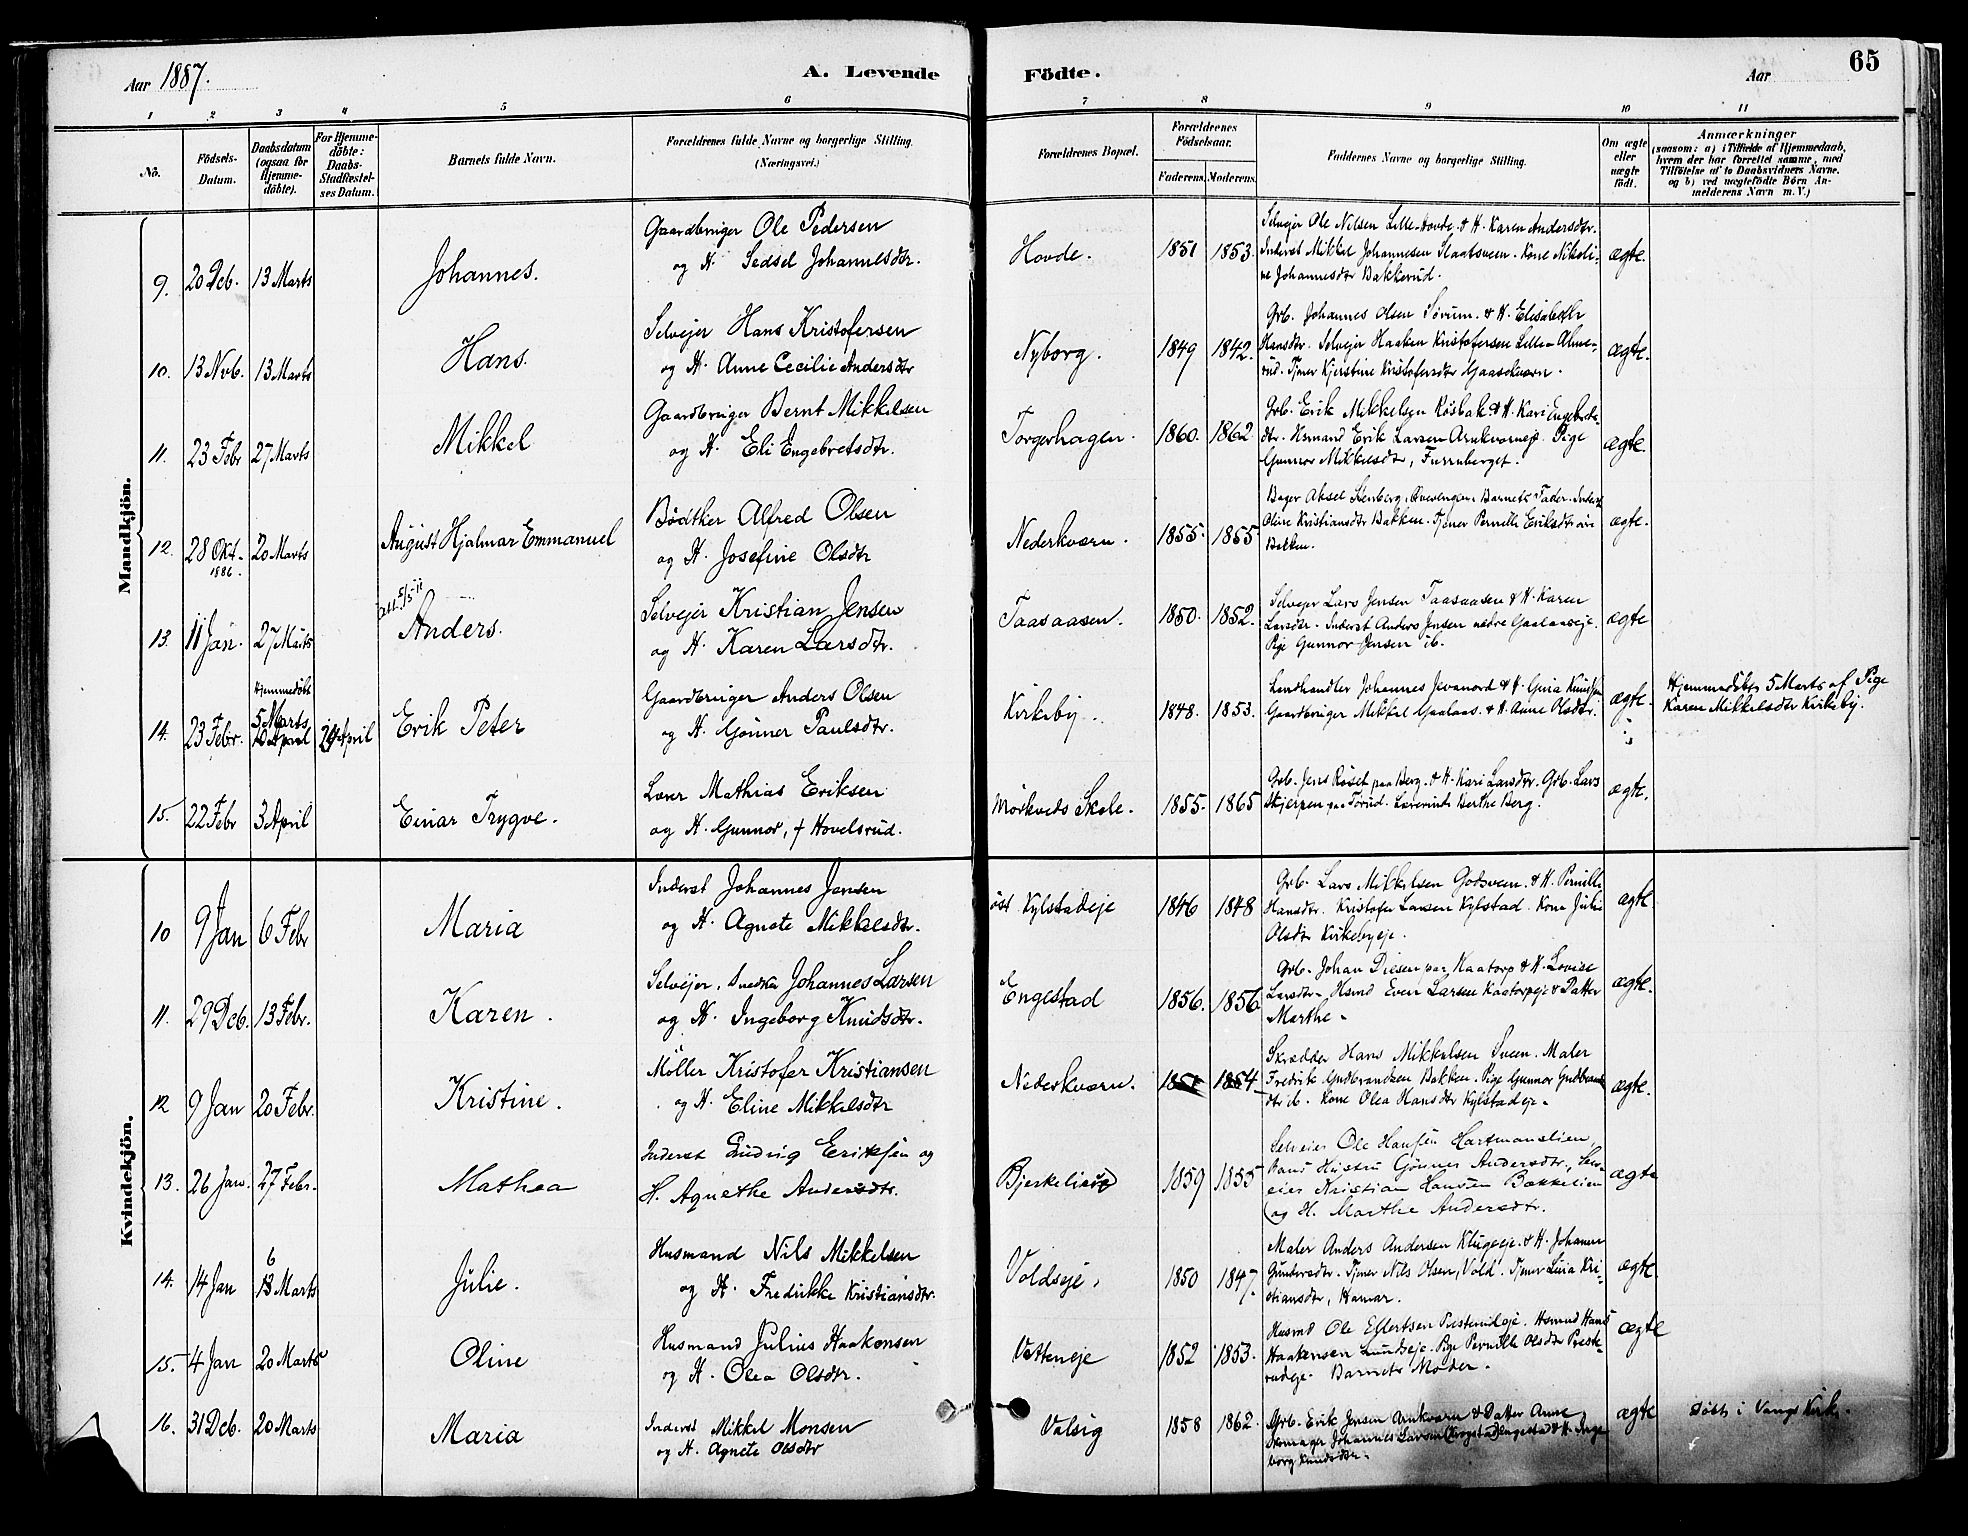 Aar 1887.
A. Levende Födte.
Aar
65
1 2 3 4 5 6 7 8 9 10 11
No.
Födsels-Datum.
Daabsdatum (ogsaa för Hjemmedöbte).
For Hjemmedöbte: Daabs-Stadfæstelses Datum.
Barnets fulde Navn.
Forældrenes fulde Navne og borgerlige Stilling. (Næringsvei.)
Forældrenes Bopæl.
Forældrenes Födselsaar.
Faderens. Moderens.
Faddernes Navne og borgerlige Stilling.
Om ægte eller uægte födt.
Anmærkninger
(saasom: a) i Tilfælde af Hjemmedaab, hvem der har forrettet samme, med Tilföielse af to Daabsvidners Navne, og b) ved uægtefödte Börn Anmelderens Navn m. V.)
Mandkjön.
Gaardbruger Ole Pedersen
og H. Sedsel Johannesdtr.
9. 20 Deb. 13 Marts Johannes. Hovde. 1851 1853. ægte.
Selvejer Ole Nilsen Lille-Hovde & H. Karen Andersdtr.
Inderst Mikkel Johannesen Slaatsveen. Kone Nikoli-
ne Johannesdtr Bakkerud.
Selvejer Hans Kristofersen
og H. Anne Cecilie Andersdtr
10. 13 Nvb. 13 Marts Hans. Nyborg. 1849 1842. ægte.
Grb. Johannes Olsen Sørum. & H. Elisabeth
Hansdtr. Selvejer Haaken Kristofersen Lille-Alme-
rud. Tjener Kjerstine Kristofersdtr Gaasekværn.
Gaardbruger Bernt Mikkelsen
og H. Eli Engebretsdtr.
11. 23 Febr 27 Marts Mikkel Torgerhagen. 1860. 1862. ægte.
Grb. Erik Mikkelsen Røsbak & H. Kari Engebrets-
dtr. Hsmand Erik Larsen Arnkværneje. Pige
Gunnor Mikkelsdtr, Furruberget.
Bødtker Alfred Olsen
og H. Josefine Olsdtr
12. 28 Okt. 1886. 20 Marts August Hjalmar Emmanuel Nederkværn. 1855. 1855 ægte.
Bager Aksel Stenberg, Barnets Fader. Inderst
Oline Kristiansdtr Bakken. Tjener Pernille Eriksdtr
Bakken.
Selvejer Kristian Jensen
og H. Karen Larsdtr.
13. 11 Jan. 27 Marts Anders. Taasaasen. 1850. 1852. ægte
Selvejer Lars Jensen Taasaasen & H. Karen
Larsdtr. Inderst Anders Jensen nedre Gaalaaseje.
Pige Gunnor Jensen ib.
Gaardbruger Anders Olsen
og H. Gønner Paulsdtr.
14. 23 Febr. Hjemmedöbt 5 Marts April Erik Peter Kirkeby. 1848. 1853. ægte.
Landhandler Johannes Jevanord & H.
Gaardbruger Mikkel Gaalaas. & H. Anne Olsdtr.
Hjemmedöbt 5 Marts af Pige
Karen Mikkelsdtr Kirkeby.
Lærer Mathias Eriksen
og H. Gunnor, f Hovelsrud.
15. 22 Febr 3 April Einar Trygve. Mørkveds Skole. 1855. 1865 ægte.
Grb. Jens Røset paa Berg. & H. Kari Larsdtr. Grb. Lars
Skjerpen paa Sørud. Lærerinde Berthe Berg.
Kvindekjön.
Inderst Johannes Jensen
og H. Agnete Mikkelsdtr.
10 9 Jan 6 Febr Maria øst. Kylstadeje 1846 1848 ægte
Grb. Lars Mikkelsen Godsveen. & H. Pernille
Hansdtr. Kristofer Larsen Kylstad. Kone Julie
Olsdtr Kirkebyeje.
Selvejer, Snedker Johannes Larsen
og H. Ingeborg Knudsdtr.
11. 29 Deb. 13 Febr. Karen. Engestad 1856. 1856 ægte.
Grb. Johan Diesen paa Kaatorp & H. Lovise
Larsdtr. Hsmd Even Larsen Kaatorpeje & Datter
Marthe.
Møller Kristofer Kristiansen
og H. Eline Mikkelsdtr
12 9 Jan 20 Febr. Kristine. Nederkværn. 1854 ægte.
Skrædder Hans Mikkelsen Sveen. Maler
Fredrik Gudbrandsen Bakken. Pige Gunnor Gudbrands-
dtr ib. Kone Olea Hansdtr Kylstadeje.
Inderst Ludvig Eriksen og
H. Agnethe Andersdtr.
13. 26 Jan. 27 Febr. Mathea 1859 1855 ægte
Selveier Ole Hansen Hartmanslien,
Hans Hustru Gönner Andersdtr., Selv-
eier Kristian Hansen Bækkelien
og H. Marthe Andersdtr.
Husmand Nils Mikkelsen
og H. Fredrikke Kristiansdtr.
14. 14 Jan 6 Marts Julie. Voldseje. 1850 1847. ægte.
Maler Anders Andersen Klugeeje. & H. Johanne
Gundersdtr. Tjener Nils Olsen, Vold. Tjener Lina Kri-
stiansdtr, Hamar.
Husmand Julius Haakonsen
og H. Olea Olsdtr.
15. 4 Jan 20 Marts Oline Vetteneje 1852 1853. ægte
Husmd Ole Ellertsen Presterudeje. Husmd Hans
Haakensen Lundseje. Pige Pernille Olsdtr Preste-
rudeje. Barnets Moder.
Inderst Mikkel Monsen
og H. Agnete Olsdtr
16. 31 Deb. 20 Marts Maria Valsig 1858 1862. ægte
Grb. Erik Jensen Arnkværn & Datter Anne
Johannes Larsen Engestad & H. Inge-
borg Knudsdtr.
Döbt i Vangs Kirke.